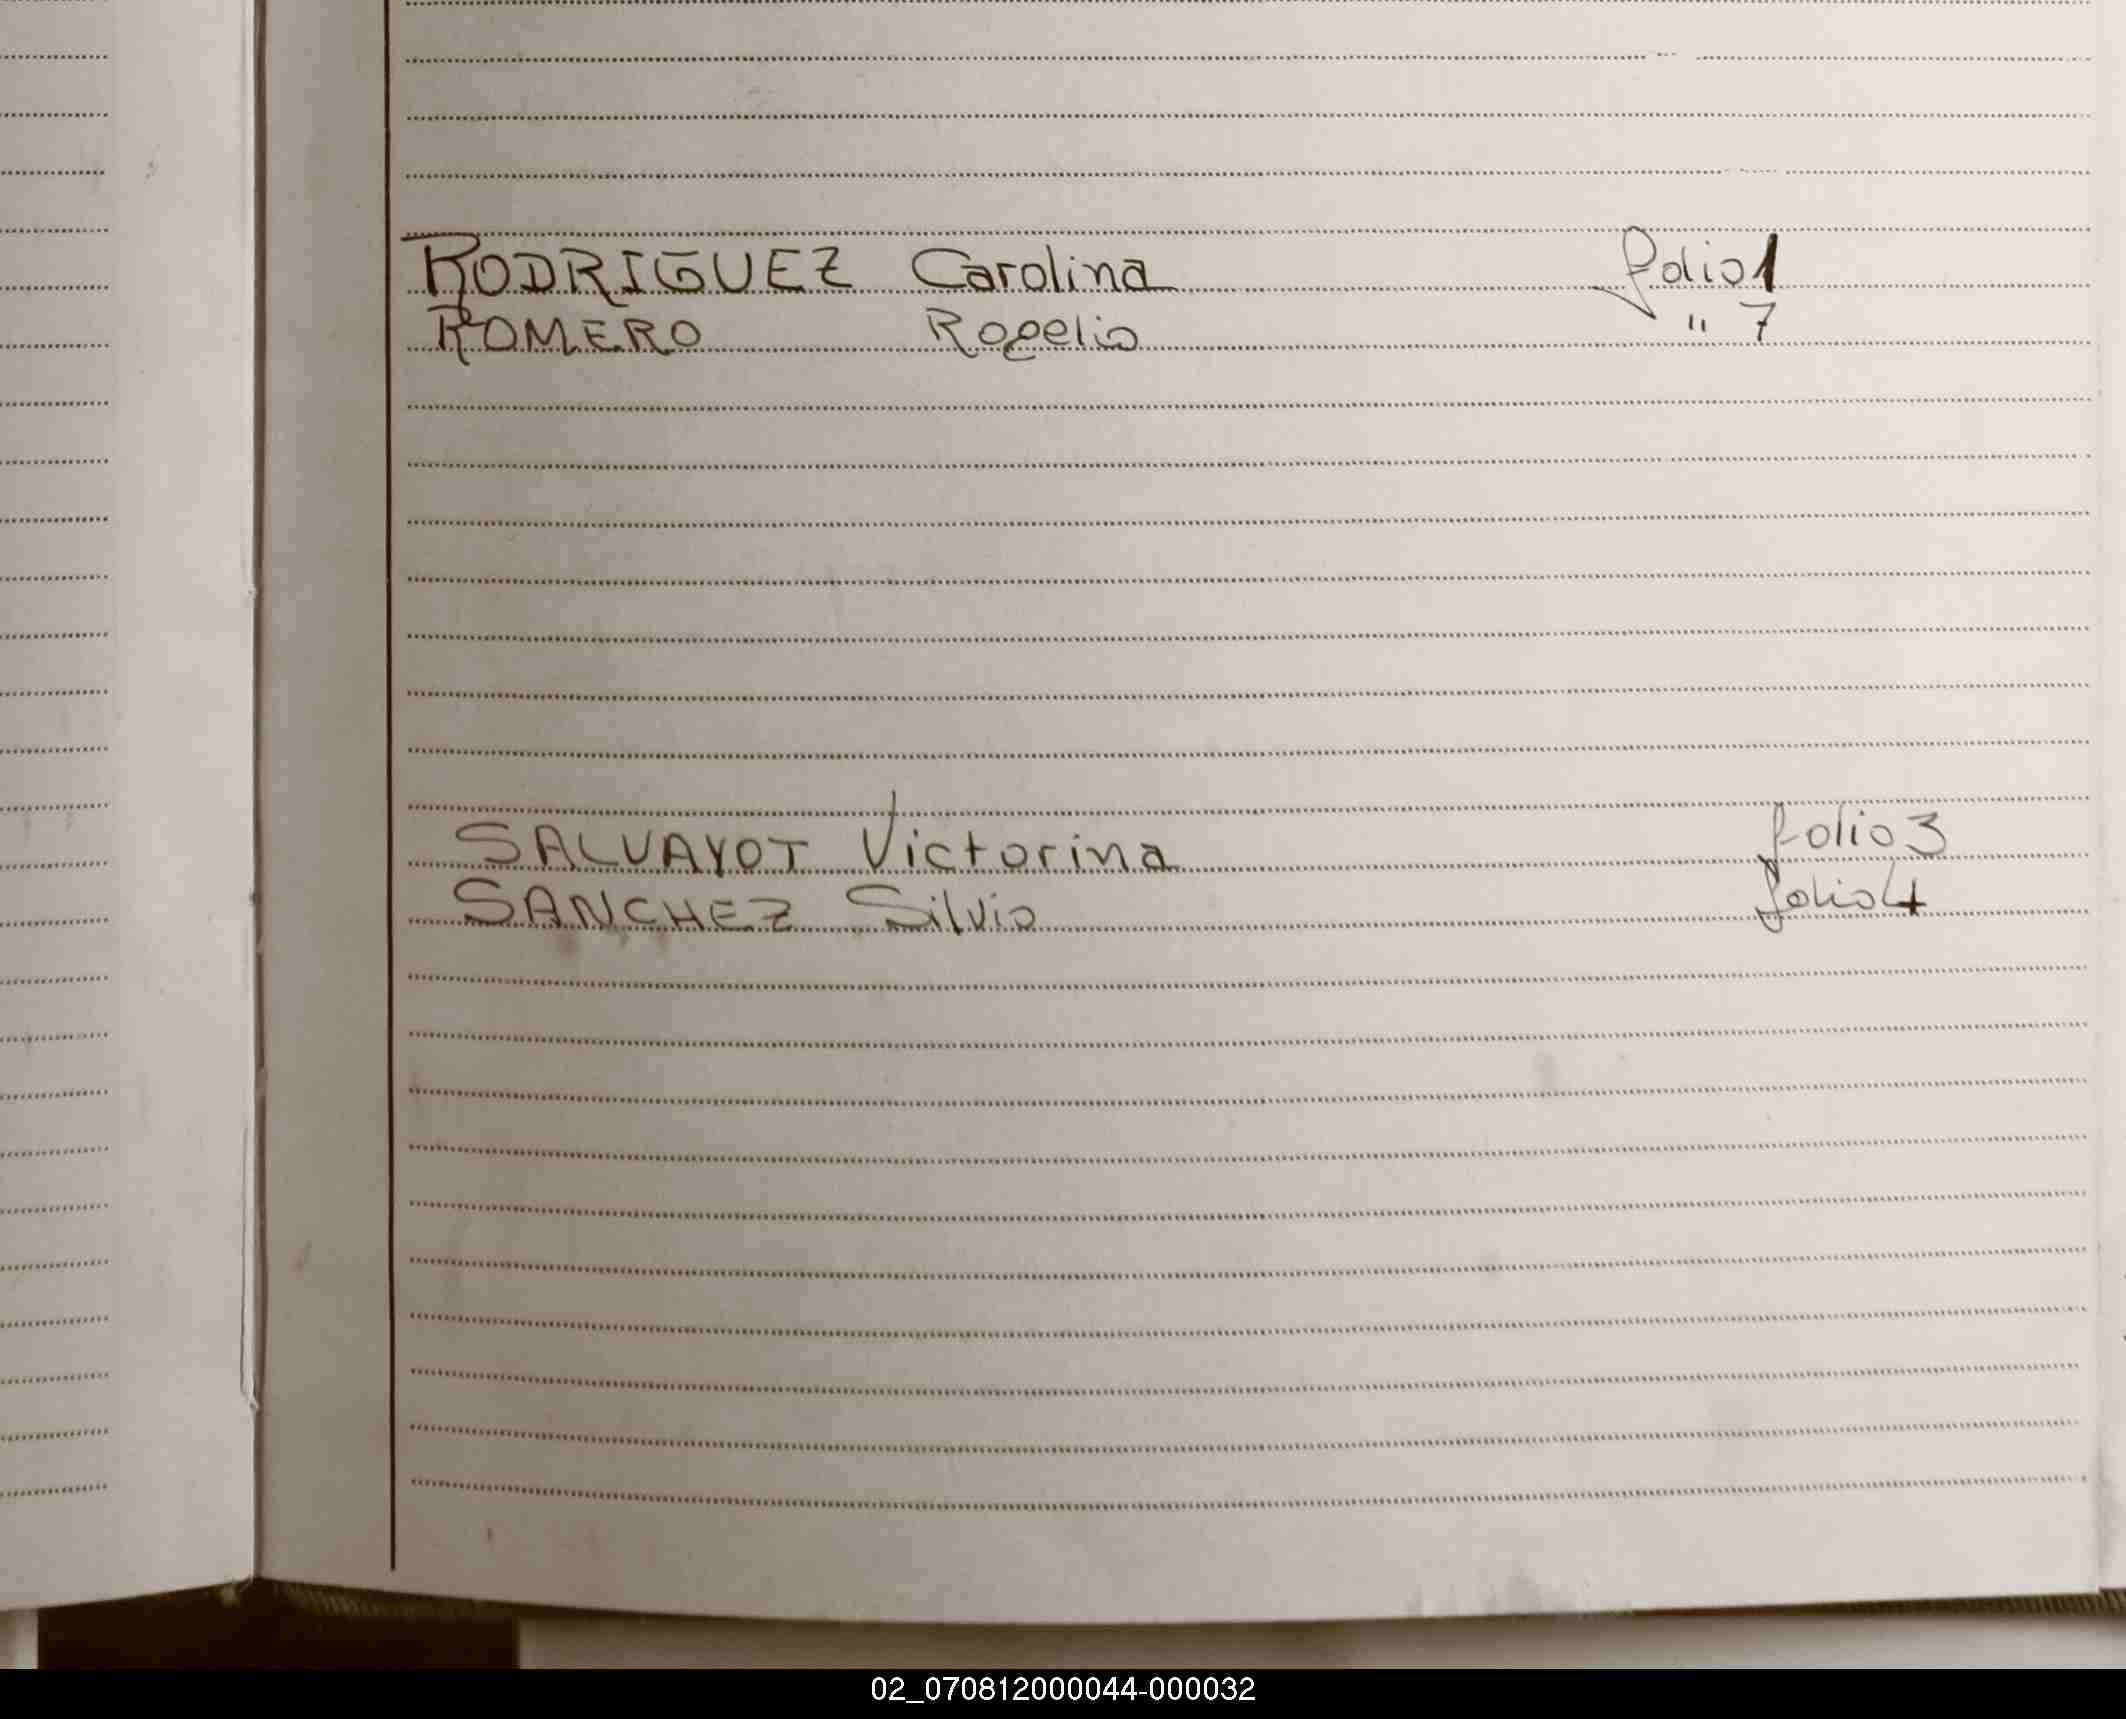 RODRIGUEZ Carolina folio 1
ROMERO Rogelio " 7
SALVAYOT Victorina folio 3
SANCHEZ Silvio folio 4
02_070812000044-000032